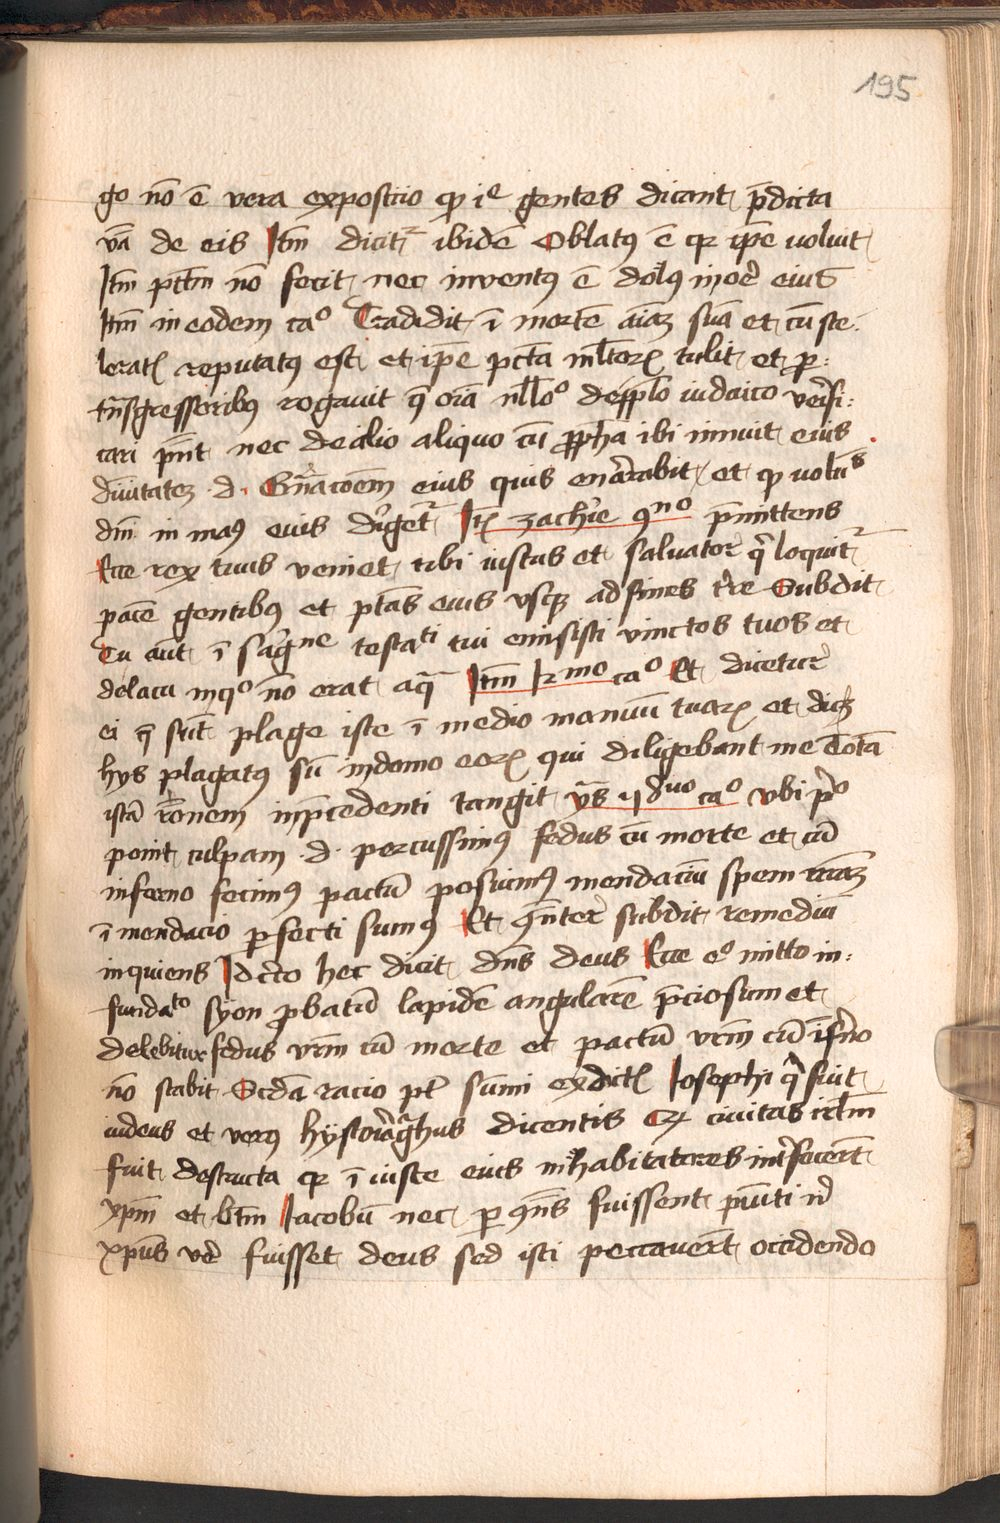 195
go nō ē vera expositio ꝙ ie gentes dicant p̄dicta
vā de eis Itm̄ dicitᷣ ibidē Oblatꝰ ē qr ip̄e voluit
Itm̄ pctm̄ nō fecit nec inventꝰ ē dolꝰ in ore eius
Itm̄ in eodem cao Tradidit ī mortē aīaꝫ suā et cū sce
leratꝭ reputatus est et ip̄e pctā mltorꝝ tulit et ꝓ
tn̄sgressoribꝰ rogavit q̄ oīa nllo de pplo iudaico verifi
cari pn̄t nec de alio aliquo cū ꝓpha ibi innuit eius
divitateꝫ d. Gn̄acōem eius quis enarrabit et ꝙ volūs
dni in manꝰ euis dirgetᷣ Itꝫ zacharie 9no p̄mittens
Ecce rex tuus veniet tibi iustus et salvator qͥ loquitᷣ
pacē gentibꝰ et ptās eius vsqꝫ ad fines tre Subdit
Tu aut ī sāgne testati tui emisisti vinctos tuos et
de lacu in qo nō erat aq̄ Itm̄ 12mo cao Et dicetur
ei q̄ sūt plage iste ī medio manuū tuarꝝ et dicꝫ
hys plagatꝰ sū in domo eorꝝ qui diligebant me Totā
istā rōnem in p̄cedenti tangit ys 28uo cao vbi po
ponit culpam d. percussimꝰ fedus cū morte et cū
inferno fecimꝰ pactū posuimꝰ mendaciū spem nrāꝫ
ī mendacio ꝓtecti sumꝰ Et ꝯn̄ter subdit remediū
inquiens Idcirco hec dicit dn̄s deus Ecce eo mitto in
fundato syon ꝓbatū lapidē angularē p̄ciosum et
delebitur fedus vrm̄ cū morte et pactū vrm̄ cū īferno
nō stabit Scd̄a racio pt sumi ex dictꝭ Iosephi qͥ fuit
iudeus et verꝰ hystoriagͣphus dicentis Qr civitas irlm
fuit destructa qr ī iuste eius inhabitatores intfecert
xpm̄ et btm̄ Iacobū nec per ꝯn̄s fuissent puīti ni
xpūs ver fuisset deus sed isti peccavert occidendo